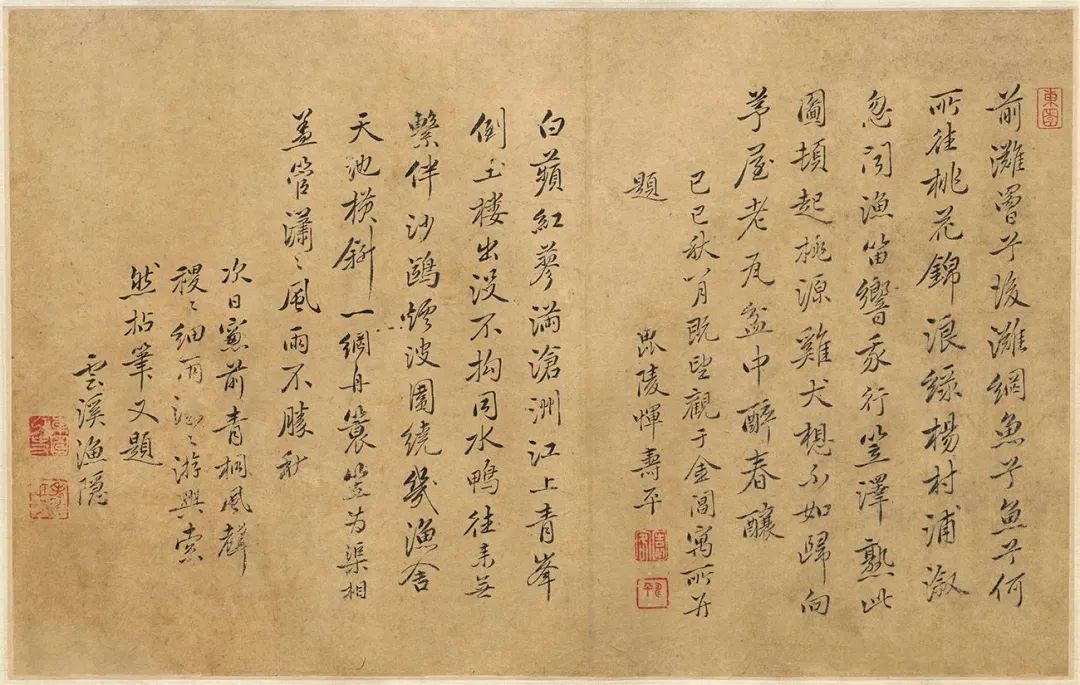 東園
前灘罾兮後灘網魚兮魚兮何
所往桃花錦浪綠楊村浦漵
忽聞漁笛響我行笠澤熟此
圖頓起桃源雞犬想不如歸向
茅屋老瓦盆中醉春釀
己巳秋八月既望觀于金閶寓所并
題
毘陵惲壽平
白蘋紅蓼滿滄洲江上青峯
倒玉樓出没不拘同水鴨往来無
繫伴沙鷗煙波圍繞幾漁舍
天池橫斜一網舟蓑笠為渠相
盖管瀟〻風雨不勝秋
次日窻前青桐風聲
稷〻細雨濛〻游興索
然拈筆又題
雲溪漁隱